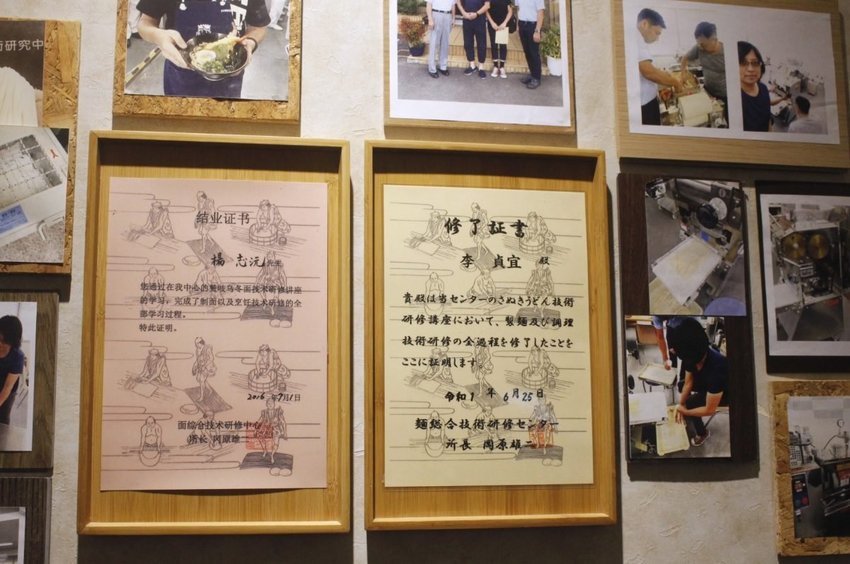 術研究中
结业证书
楊志沅 先生
您通过在我中心的赞岐乌冬面技术研修讲座
的学习，完成了制面以及烹饪技术研修的全
部学习过程。
特此证明。
2016 年9月1日
面综合技术研修中心
所长 冈原雄二
修了証書
李貞宜 殿
貴殿は当センターのさぬきうどん技術
研修講座において、製麺及び調理
技術研修の全過程を修了したことを
ここに証明します
令和1 年 6月25日
麺総合技術研修センター
所長 岡原雄二